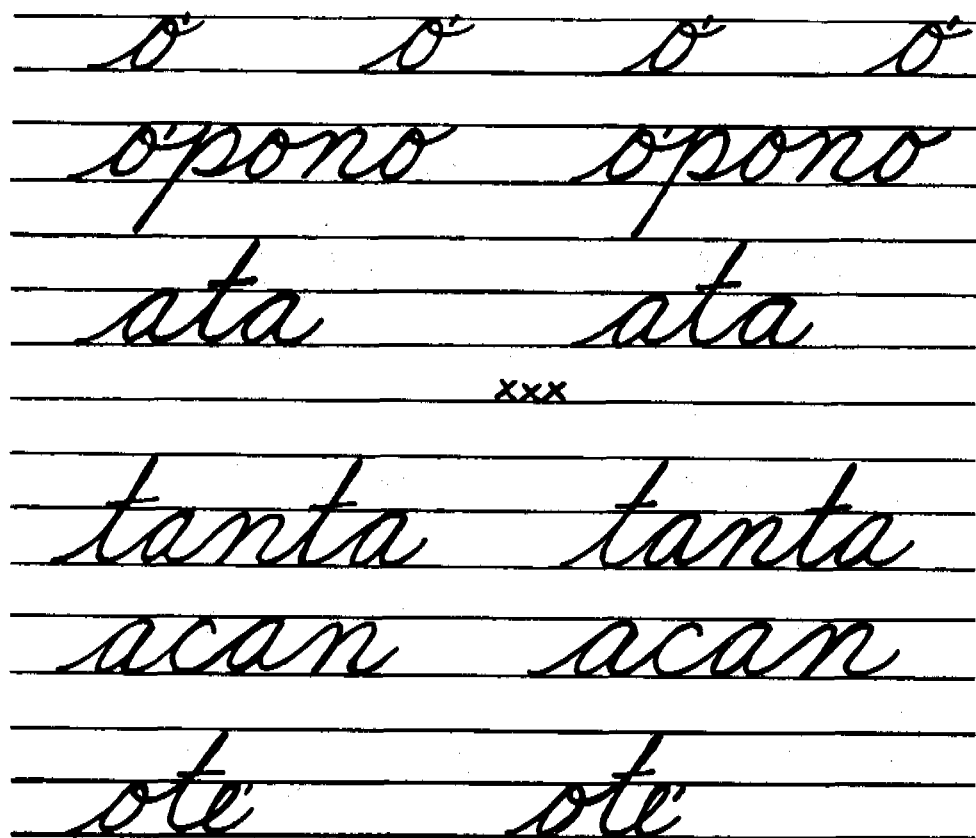 ó ó ó ó
ópono ópono
ata ata
xxx
tanta tanta
acan acan
oté oté